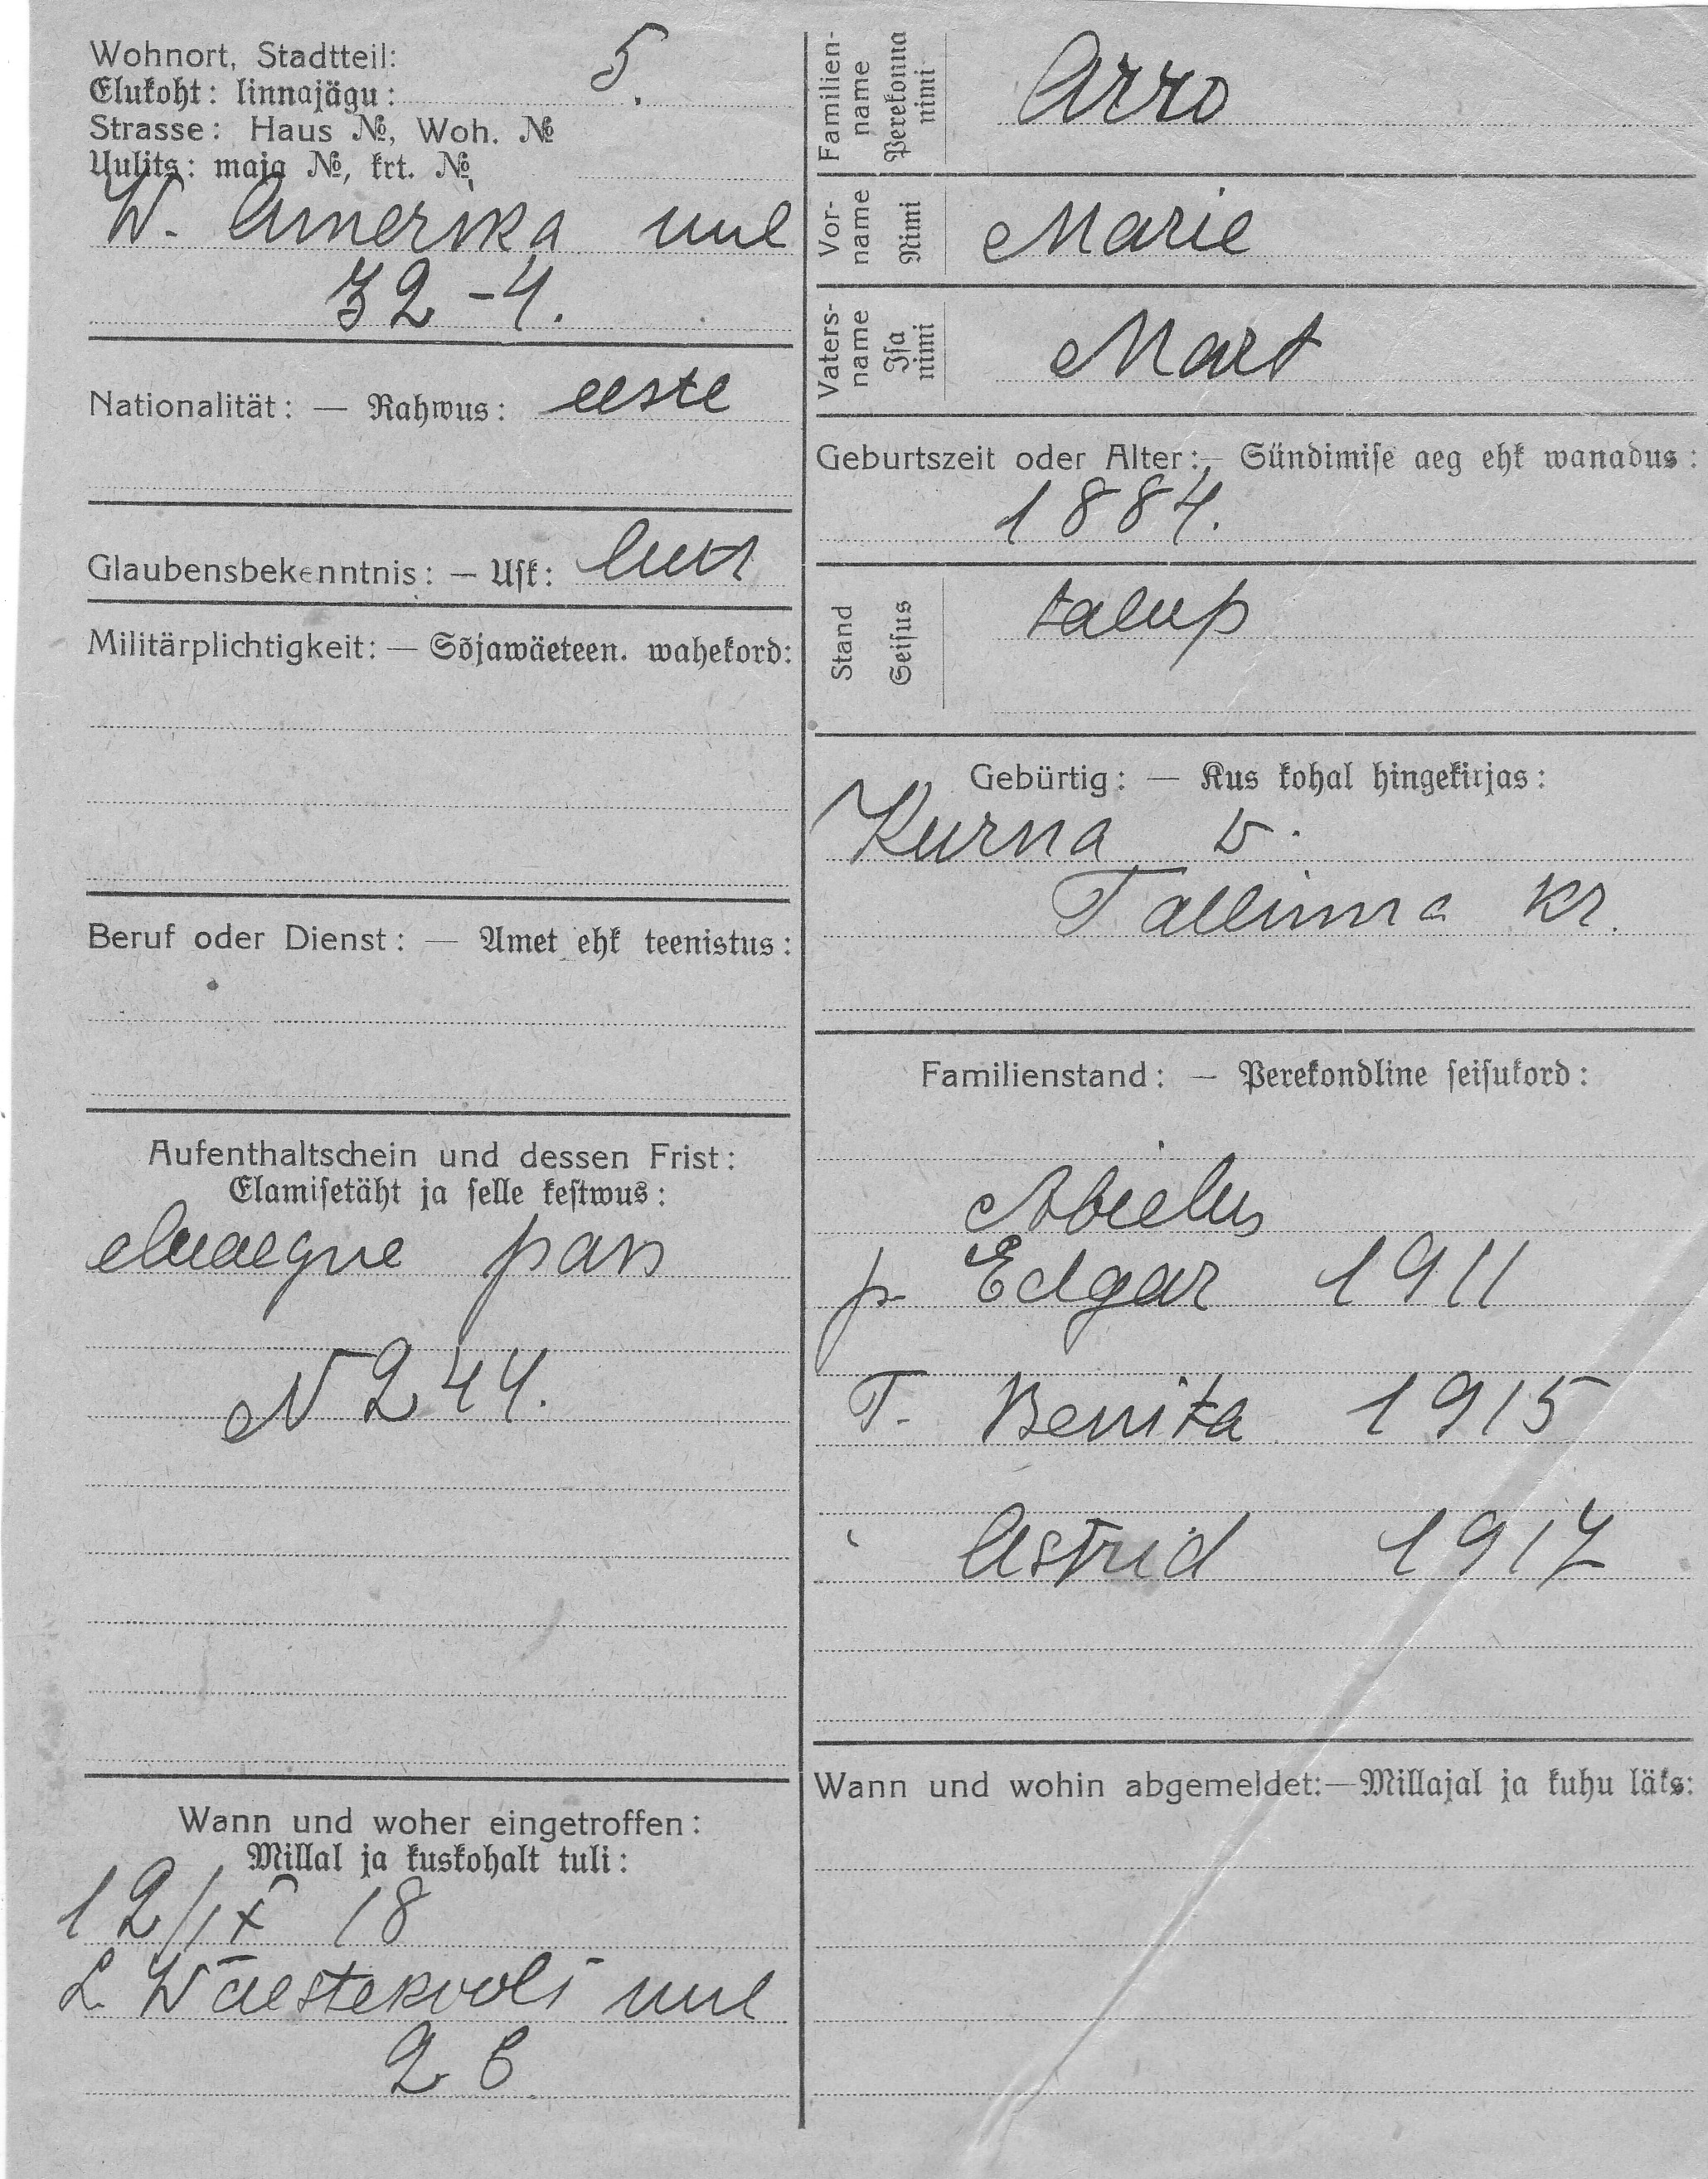 Wohnort, Stadtteil:
Elukoht: linnajägu: 5.
Strasse: Haus №, Woh. №
Uulits: maja №, krt. №
W. Amerika uul
32-4.
Nationalität: — Rahwus: eeste
Glaubensbekenntnis: — Usk: lut
Militärplichtigkeit: — Sõjawäeteen. wahekord:
Beruf oder Dienst: — Amet ehk teenistus:
Aufenthaltschein und dessen Frist:
Elamisetäht ja selle kestwus:
eluaegne pass
N 244.
Wann und woher eingetroffen:
Millal ja kuskohalt tuli:
12/IX 18
L. Wäestekooli uul
26
Familien-
name
Perekonna
nimi
Arro
Vor-
name
Nimi
Marie
Vaters-
name
Isa
nimi
Mart
Geburtszeit oder Alter: — Sündimise aeg ehk wanadus:
1884.
Stand
Seisus
talup
Gebürtig: — Kus kohal hingekirjas:
Kurna v.
Tallinna kr.
Familienstand: — Perekondline seisukord:
Abielus
p Edgar 1911
T. Benita 1915
" Astrid 1917
Wann und wohin abgemeldet:—Millajal ja kuhu läks: